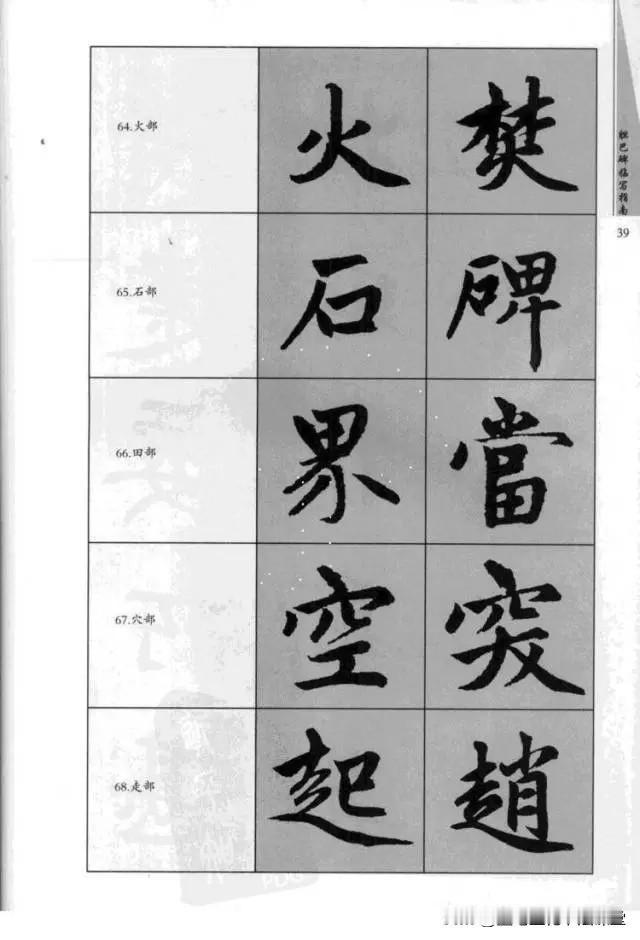 胆巴碑临写指南
39
64.火部 火 焚
65.石部 石 碑
66.田部 界 當
67.穴部 空 突
68.走部 起 趙